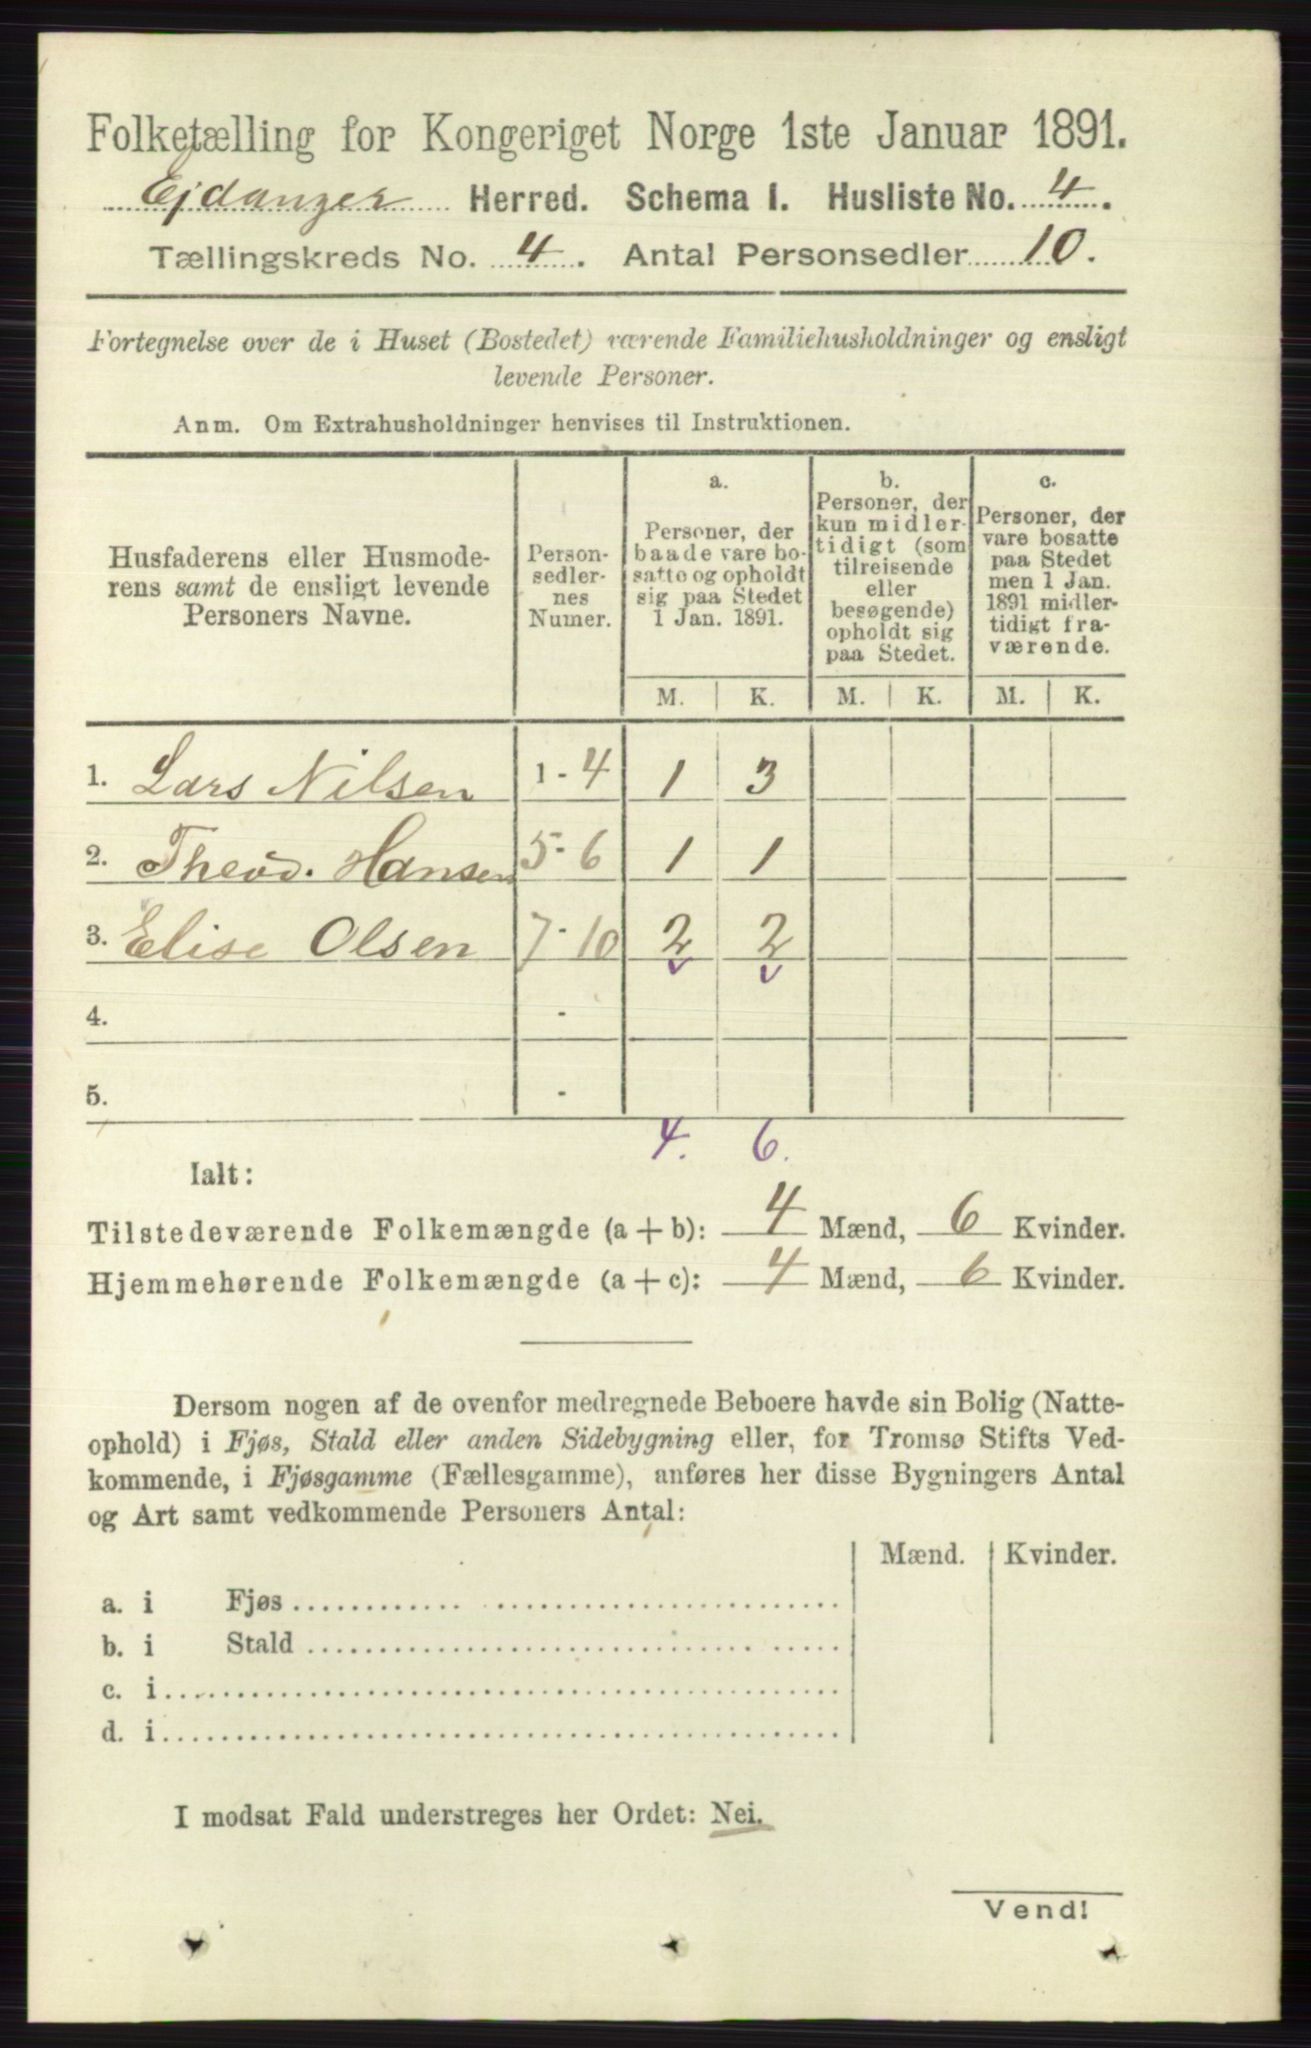 Folketælling for Kongeriget Norge 1ste Januar 1891.
Ejdanger Herred. Schema I. Husliste No. 4.
Tællingskreds No. 4. Antal Personsedler 10.
Fortegnelse over de i Huset (Bostedet) værende Familiehusholdninger og ensligt
levende Personer.
Anm. Om Extrahusholdninger henvises til Instruktionen.
Husfaderens eller Husmode-
rens samt de ensligt levende
Personers Navne.
Person-
sedler-
nes
Numer.
a.
Personer, der
baade vare bo-
satte og opholdt
sig paa Stedet
1 Jan. 1891.
b.
Personer, der
kun midler-
tidigt (som
tilreisende
eller
besøgende)
opholdt sig
paa Stedet.
c.
Personer, der
vare bosatte
paa Stedet
men 1 Jan.
1891 midler-
tidigt fra-
værende.
M. K. M. K. M. K.
1. Lars Nilsen 1-4 1 3
2. Theod. Hansen 5-6 1 1
3. Elise Olsen 7-10 2 2
4. -
5. -
4. 6.
Ialt:
Tilstedeværende Folkemængde (a + b): 4 Mænd, 6 Kvinder.
Hjemmehørende Folkemængde (a + c): 4 Mænd, 6 Kvinder.
Dersom nogen af de ovenfor medregnede Beboere havde sin Bolig (Natte-
ophold) i Fjøs, Stald eller anden Sidebygning eller, for Tromsø Stifts Ved-
kommende, i Fjøsgamme (Fællesgamme), anføres her disse Bygningers Antal
og Art samt vedkommende Personers Antal:
Mænd. Kvinder.
a. i Fjøs
b. i Stald
c. i
d. i
I modsat Fald understreges her Ordet: Nei.
Vend!